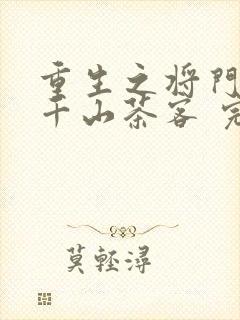 重生之将門
千山茶客 完
莫輕潯